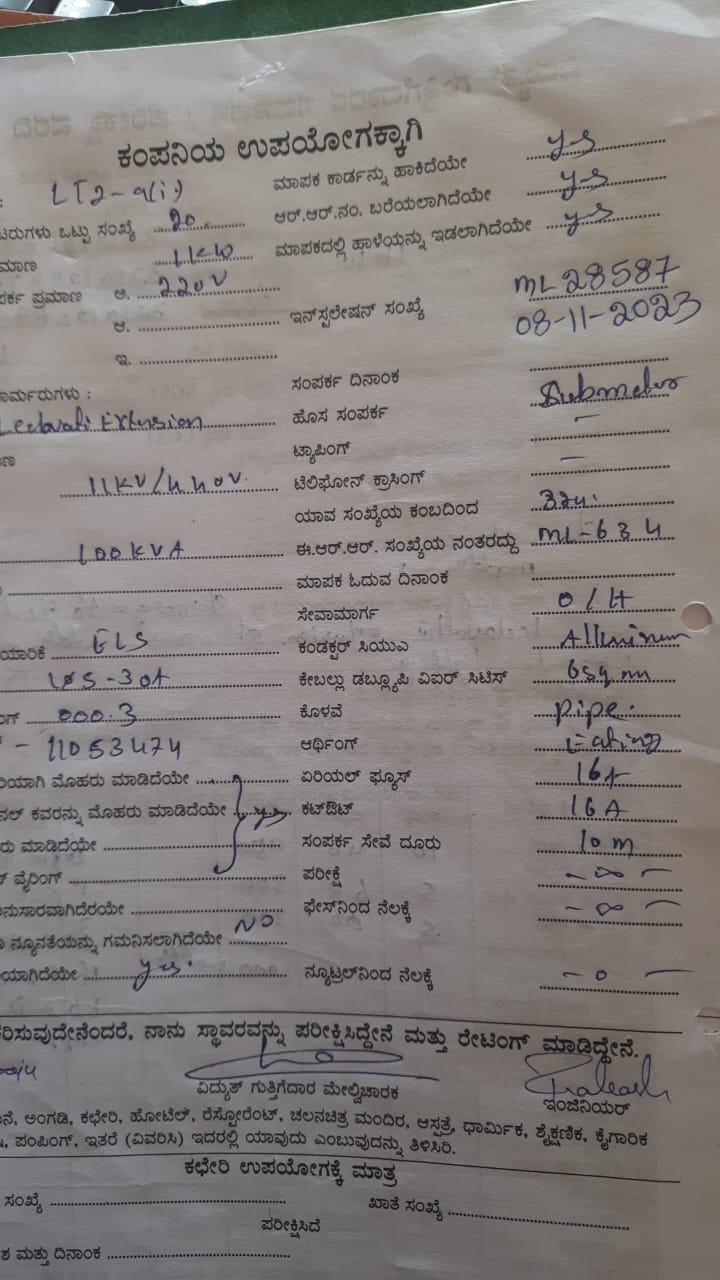 ಕಂಪನಿಯ ಉಪಯೋಗಕ್ಕಾಗಿ
: LT2-a(i) ಮಾಪಕ ಕಾರ್ಡನ್ನು ಹಾಕಿದೆಯೇ yes
ಟರುಗಳು ಒಟ್ಟು ಸಂಖ್ಯೆ 20 ಆರ್.ಆರ್.ನಂ. ಬರೆಯಲಾಗಿದೆಯೇ yes
ಮಾಣ 1KW ಮಾಪಕದಲ್ಲಿ ಹಾಳೆಯನ್ನು ಇಡಲಾಗಿದೆಯೇ yes
ಪರ್ಕ ಪ್ರಮಾಣ ಅ. 220V
ಆ. ಇನ್‌ಸ್ಟಲೇಷನ್ ಸಂಖ್ಯೆ ML 28587
08-11-2023
ಇ.
ಾರ್ಮರುಗಳು : ಸಂಪರ್ಕ ದಿನಾಂಕ
Extension ಹೊಸ ಸಂಪರ್ಕ Submeter
ಣ ಟ್ಯಾಪಿಂಗ್ –
11KV/440V. ಟೆಲಿಫೋನ್ ಕ್ರಾಸಿಂಗ್ –
ಯಾವ ಸಂಖ್ಯೆಯ ಕಂಬದಿಂದ
100KVA ಈ.ಆರ್.ಆರ್. ಸಂಖ್ಯೆಯ ನಂತರದ್ದು ML-634
ಮಾಪಕ ಓದುವ ದಿನಾಂಕ
ಸೇವಾಮಾರ್ಗ O/H
ಯಾರಿಕೆ ELS ಕಂಡಕ್ಟರ್ ಸಿಯುವಿ Alluminum
ಕೇಬಲ್ಲು ಡಬ್ಲ್ಯೂಪಿ ವಿಐರ್ ಸಿಟಿಸ್ 6sq mm
ಂಗ್ 000.3 ಕೊಳವೆ pipe.
- 11053474 ಆರ್ಥಿಂಗ್
ರಿಯಾಗಿ ಮೊಹರು ಮಾಡಿದೆಯೇ ಏರಿಯಲ್ ಫ್ಯೂಸ್ 16A
ನಲ್ ಕವರನ್ನು ಮೊಹರು ಮಾಡಿದೆಯೇ yes. ಕಟ್‌ಔಟ್ 16A
ರು ಮಾಡಿದೆಯೇ ಸಂಪರ್ಕ ಸೇವೆ ದೂರು 10 m
್ ವೈರಿಂಗ್ ಪರೀಕ್ಷೆ – ∞ –
ನುಸಾರವಾಗಿದೆರಯೇ ಫೇಸ್‌ನಿಂದ ನೆಲಕ್ಕೆ – ∞ –
ನ್ಯೂನತೆಯನ್ನು ಗಮನಿಸಲಾಗಿದೆಯೇ NO
ಯಾಗಿದೆಯೇ yes. ನ್ಯೂಟ್ರಲ್‌ನಿಂದ ನೆಲಕ್ಕೆ – 0 –
ಕರಿಸುವುದೇನೆಂದರೆ, ನಾನು ಸ್ಥಾವರವನ್ನು ಪರೀಕ್ಷಿಸಿದ್ದೇನೆ ಮತ್ತು ರೇಟಿಂಗ್ ಮಾಡಿದ್ದೇನೆ.
ವಿದ್ಯುತ್ ಗುತ್ತಿಗೆದಾರ ಮೇಲ್ವಿಚಾರಕ ಇಂಜಿನಿಯರ್
ನೆ, ಅಂಗಡಿ, ಕಛೇರಿ, ಹೋಟೆಲ್, ರೆಸ್ಟೋರೆಂಟ್, ಚಲನಚಿತ್ರ ಮಂದಿರ, ಆಸ್ಪತ್ರೆ, ಧಾರ್ಮಿಕ, ಶೈಕ್ಷಣಿಕ, ಕೈಗಾರಿಕ
, ಪಂಪಿಂಗ್, ಇತರೆ (ವಿವರಿಸಿ) ಇದರಲ್ಲಿ ಯಾವುದು ಎಂಬುವುದನ್ನು ತಿಳಿಸಿರಿ.
ಕಛೇರಿ ಉಪಯೋಗಕ್ಕೆ ಮಾತ್ರ
ಸಂಖ್ಯೆ ಖಾತೆ ಸಂಖ್ಯೆ
ಪರೀಕ್ಷಿಸಿದೆ
ಶ ಮತ್ತು ದಿನಾಂಕ